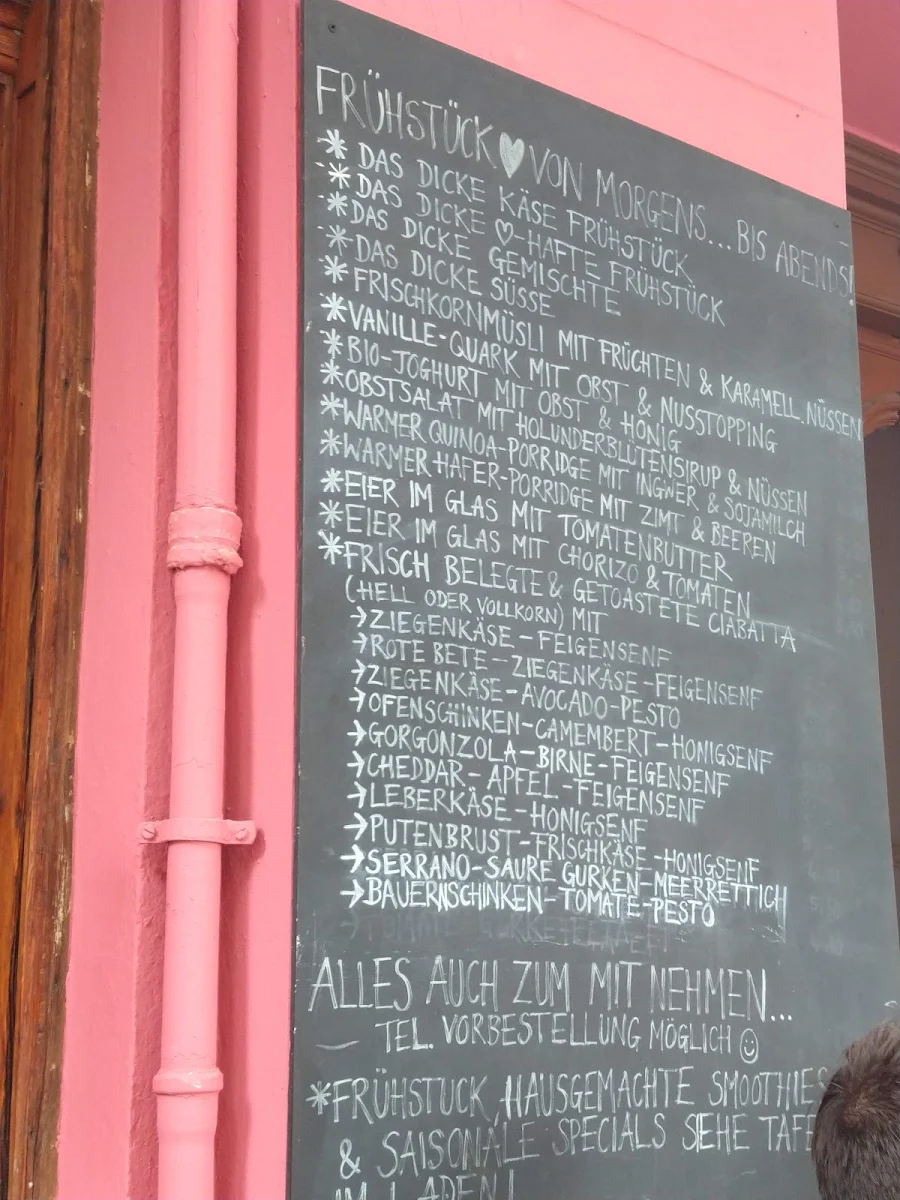 FRÜHSTÜCK ♥ VON MORGENS... BIS ABENDS!
* DAS DICKE KÄSE FRÜHSTÜCK
* DAS DICKE ♡-HAFTE FRÜHSTÜCK
* DAS DICKE GEMISCHTE
* DAS DICKE SÜSSE
* FRISCHKORNMÜSLI MIT FRÜCHTEN & KARAMELL.NÜSSEN
* VANILLE-QUARK MIT OBST & NUSSTOPPING
* BIO-JOGHURT MIT OBST & HONIG
* OBSTSALAT MIT HOLUNDERBLÜTENSIRUP & NÜSSEN
* WARMER QUINOA-PORRIDGE MIT INGWER & SOJAMILCH
* WARMER HAFER-PORRIDGE MIT ZIMT & BEEREN
* EIER IM GLAS MIT TOMATENBUTTER
* EIER IM GLAS MIT CHORIZO & TOMATEN
* FRISCH BELEGTE & GETOASTETE CIABATTA
(HELL ODER VOLLKORN) MIT
→ ZIEGENKÄSE - FEIGENSENF
→ ROTE BETE - ZIEGENKÄSE - FEIGENSENF
→ ZIEGENKÄSE - AVOCADO - PESTO
→ OFENSCHINKEN - CAMEMBERT - HONIGSENF
→ GORGONZOLA - BIRNE - FEIGENSENF
→ CHEDDAR - APFEL - FEIGENSENF
→ LEBERKÄSE - HONIGSENF
→ PUTENBRUST - FRISCHKÄSE - HONIGSENF
→ SERRANO - SAURE GURKEN - MEERRETTICH
→ BAUERNSCHINKEN - TOMATE - PESTO
ALLES AUCH ZUM MIT NEHMEN...
TEL. VORBESTELLUNG MÖGLICH ☺
* FRÜHSTÜCK, HAUSGEMACHTE SMOOTHIES
& SAISONALE SPECIALS SIEHE TAFE
IM LADEN!